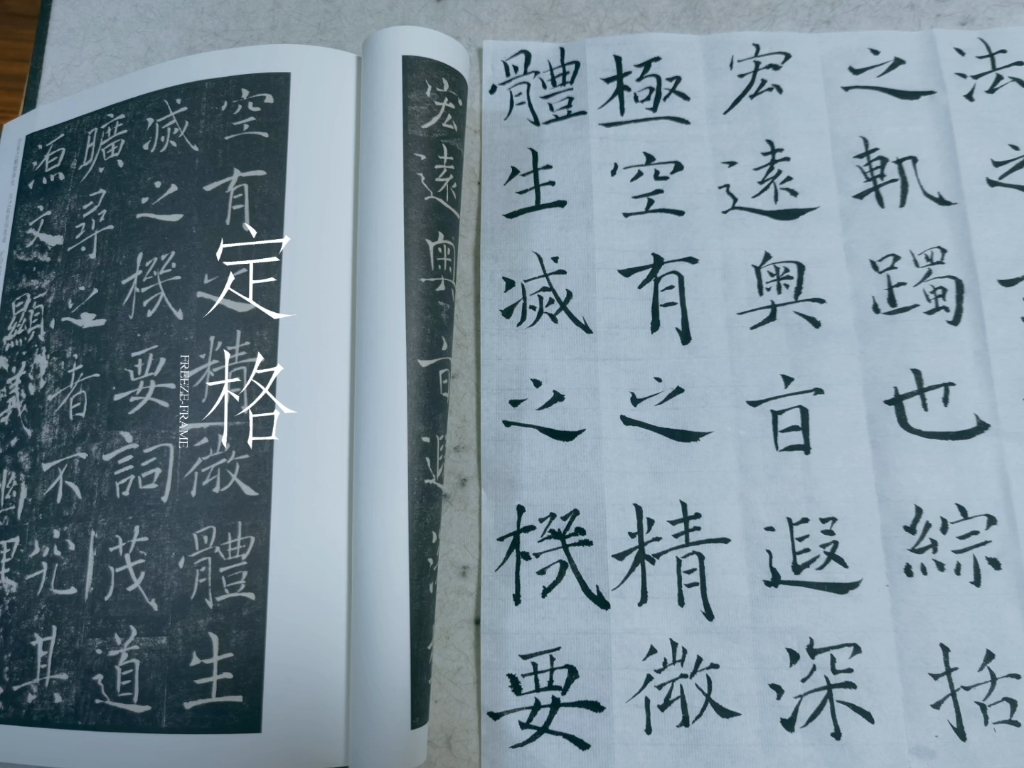 法之
之軌躅也綜括
宏遠奧旨遐深
極空有之精微
體生滅之機要
宏遠奧旨遐深
空有之精微體生
滅之機要詞茂道
曠尋之者不究其
源文顯義幽理
定格
FREEZE-FRAME